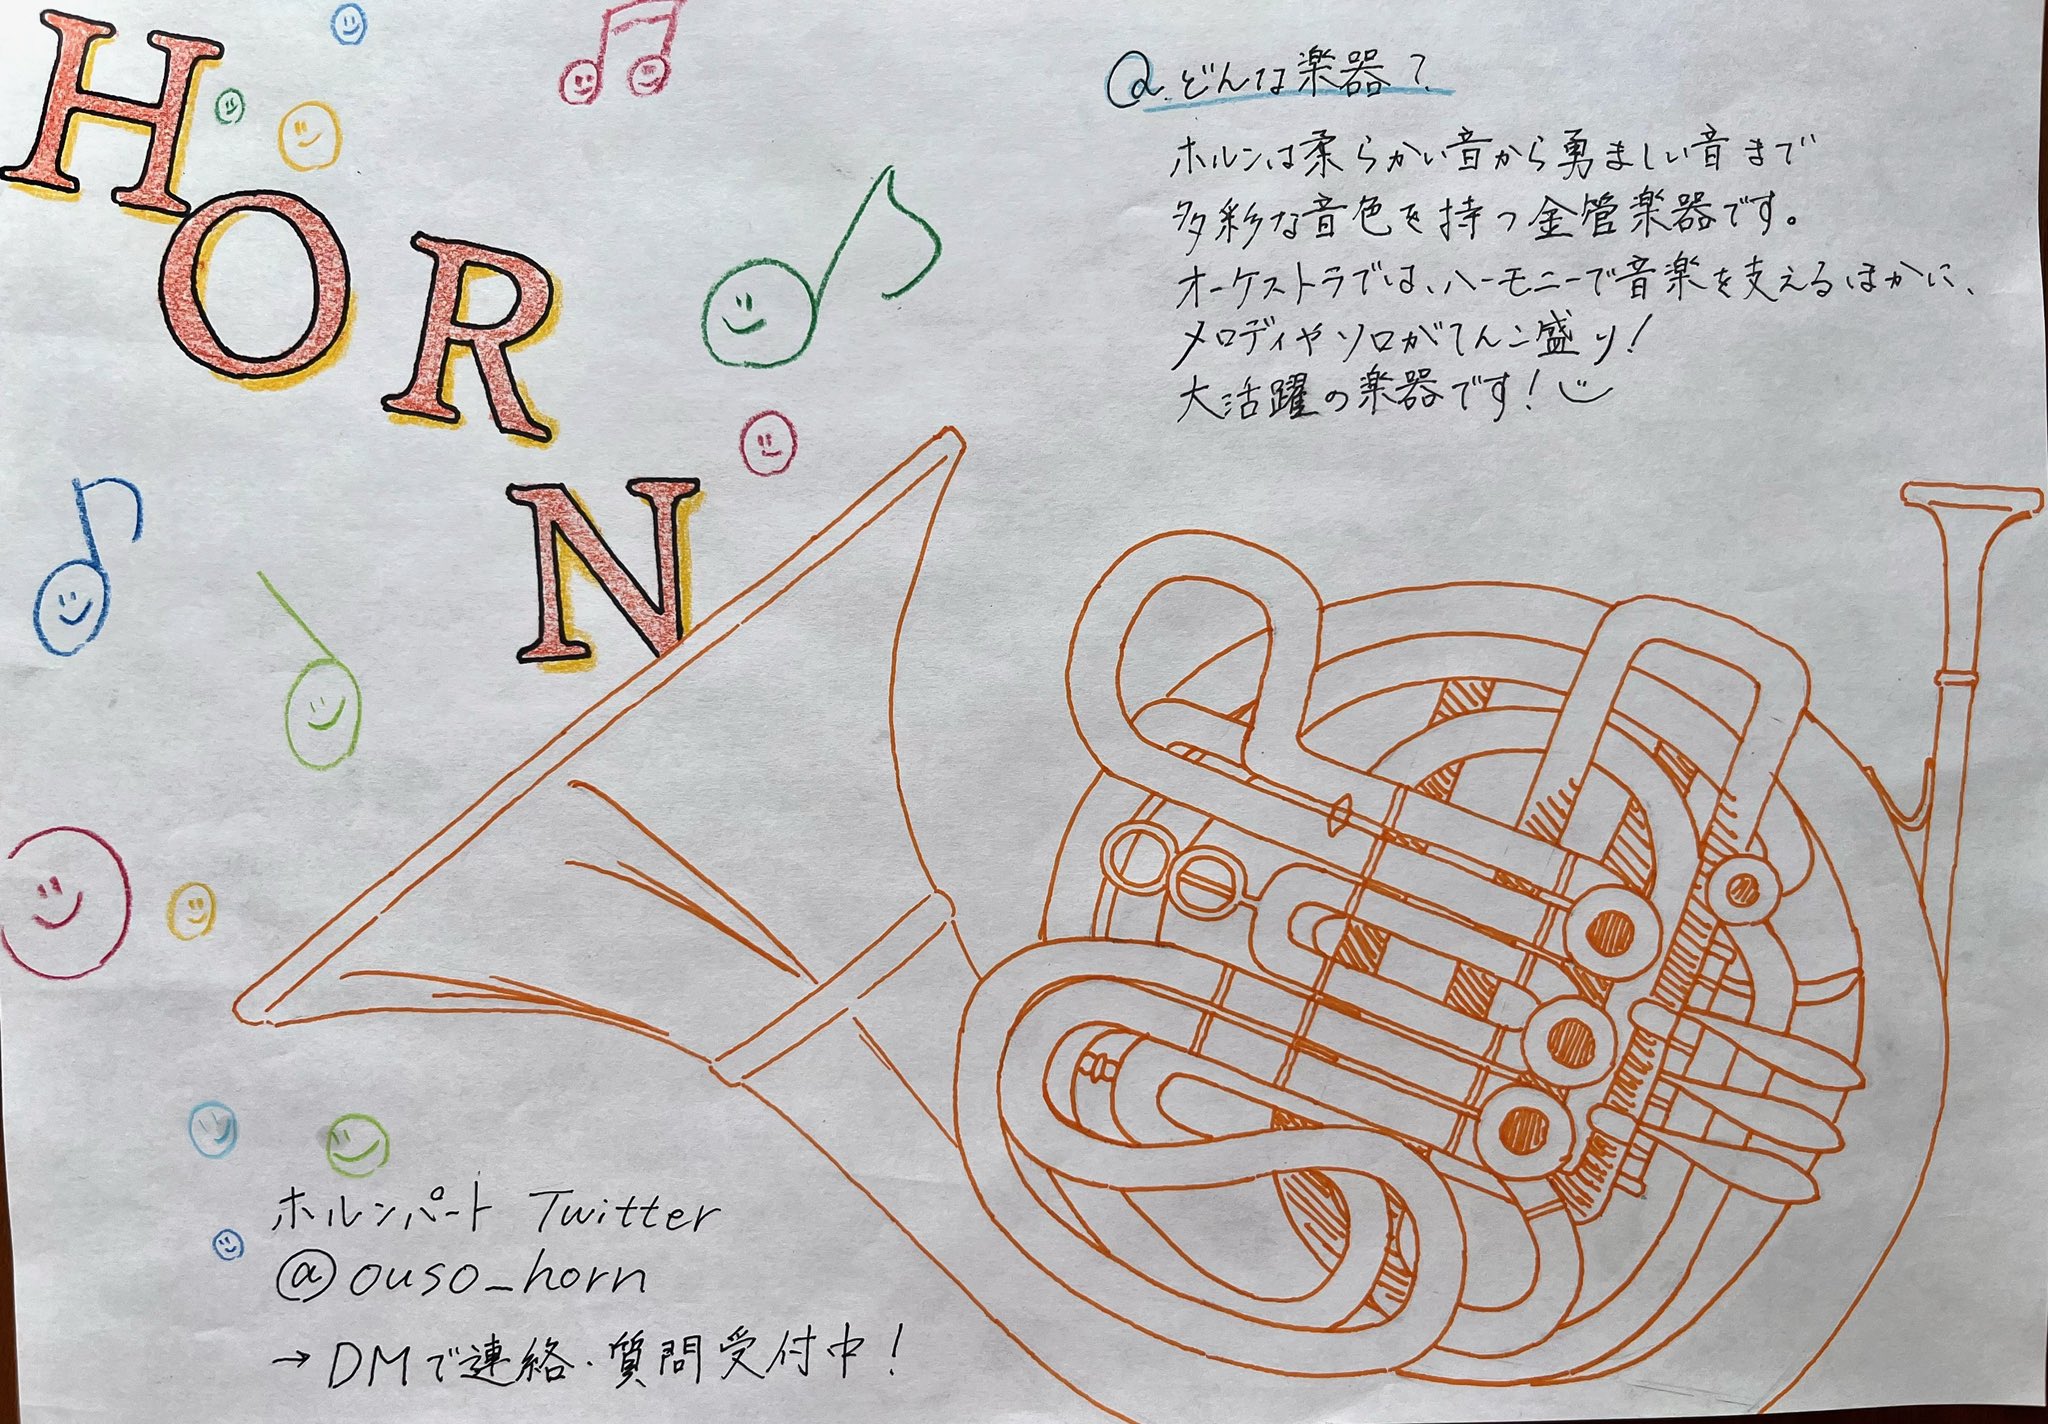 HORN
Q.どんな楽器?
ホルンは柔らかい音から勇ましい音まで
多彩な音色を持つ金管楽器です。
オーケストラでは、ハーモニーで音楽を支えるほかに、
メロディやソロがてんこ盛り!
大活躍の楽器です!
ホルンパート Twitter
@ouso_horn
→DMで連絡・質問受付中!